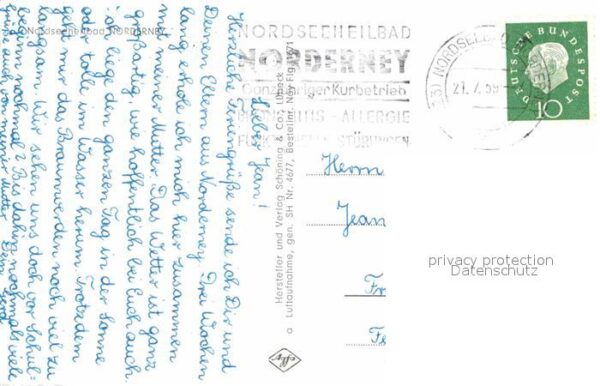 Nordseeheilbad NORDERNEY
Lieber Jean!
Herzliche Feriengrüße sende ich Dir und
Deinen Eltern aus Norderney. Drei Wochen
lang erhole ich mich hier zusammen
mit meiner Mutter. Das Wetter ist ganz
großartig, wie hoffentlich bei Euch auch.
Ich liege den ganzen Tag in der Sonne
oder tolle im Wasser herum. Trotzdem
geht mir das Braunwerden noch viel zu
langsam. Wir sehen uns doch vor Schul=
beginn nochmal? Bis dahin nochmals viele
Grüße auch von meiner Mutter Dein
Hersteller und Verlag Schöning & Co., Lübeck
a Luftaufnahme, gen. SH Nr. 467/1, Bestellnr. Ney Flg.
NORDSEEHEILBAD
NORDERNEY
Ganzjähriger Kurbetrieb
BRONCHITIS - ALLERGIE
STÖRUNGEN
NORDSEE
DEUTSCHE BUNDESPOST
10
Herrn
Jean
Fr
privacy protection
Datenschutz